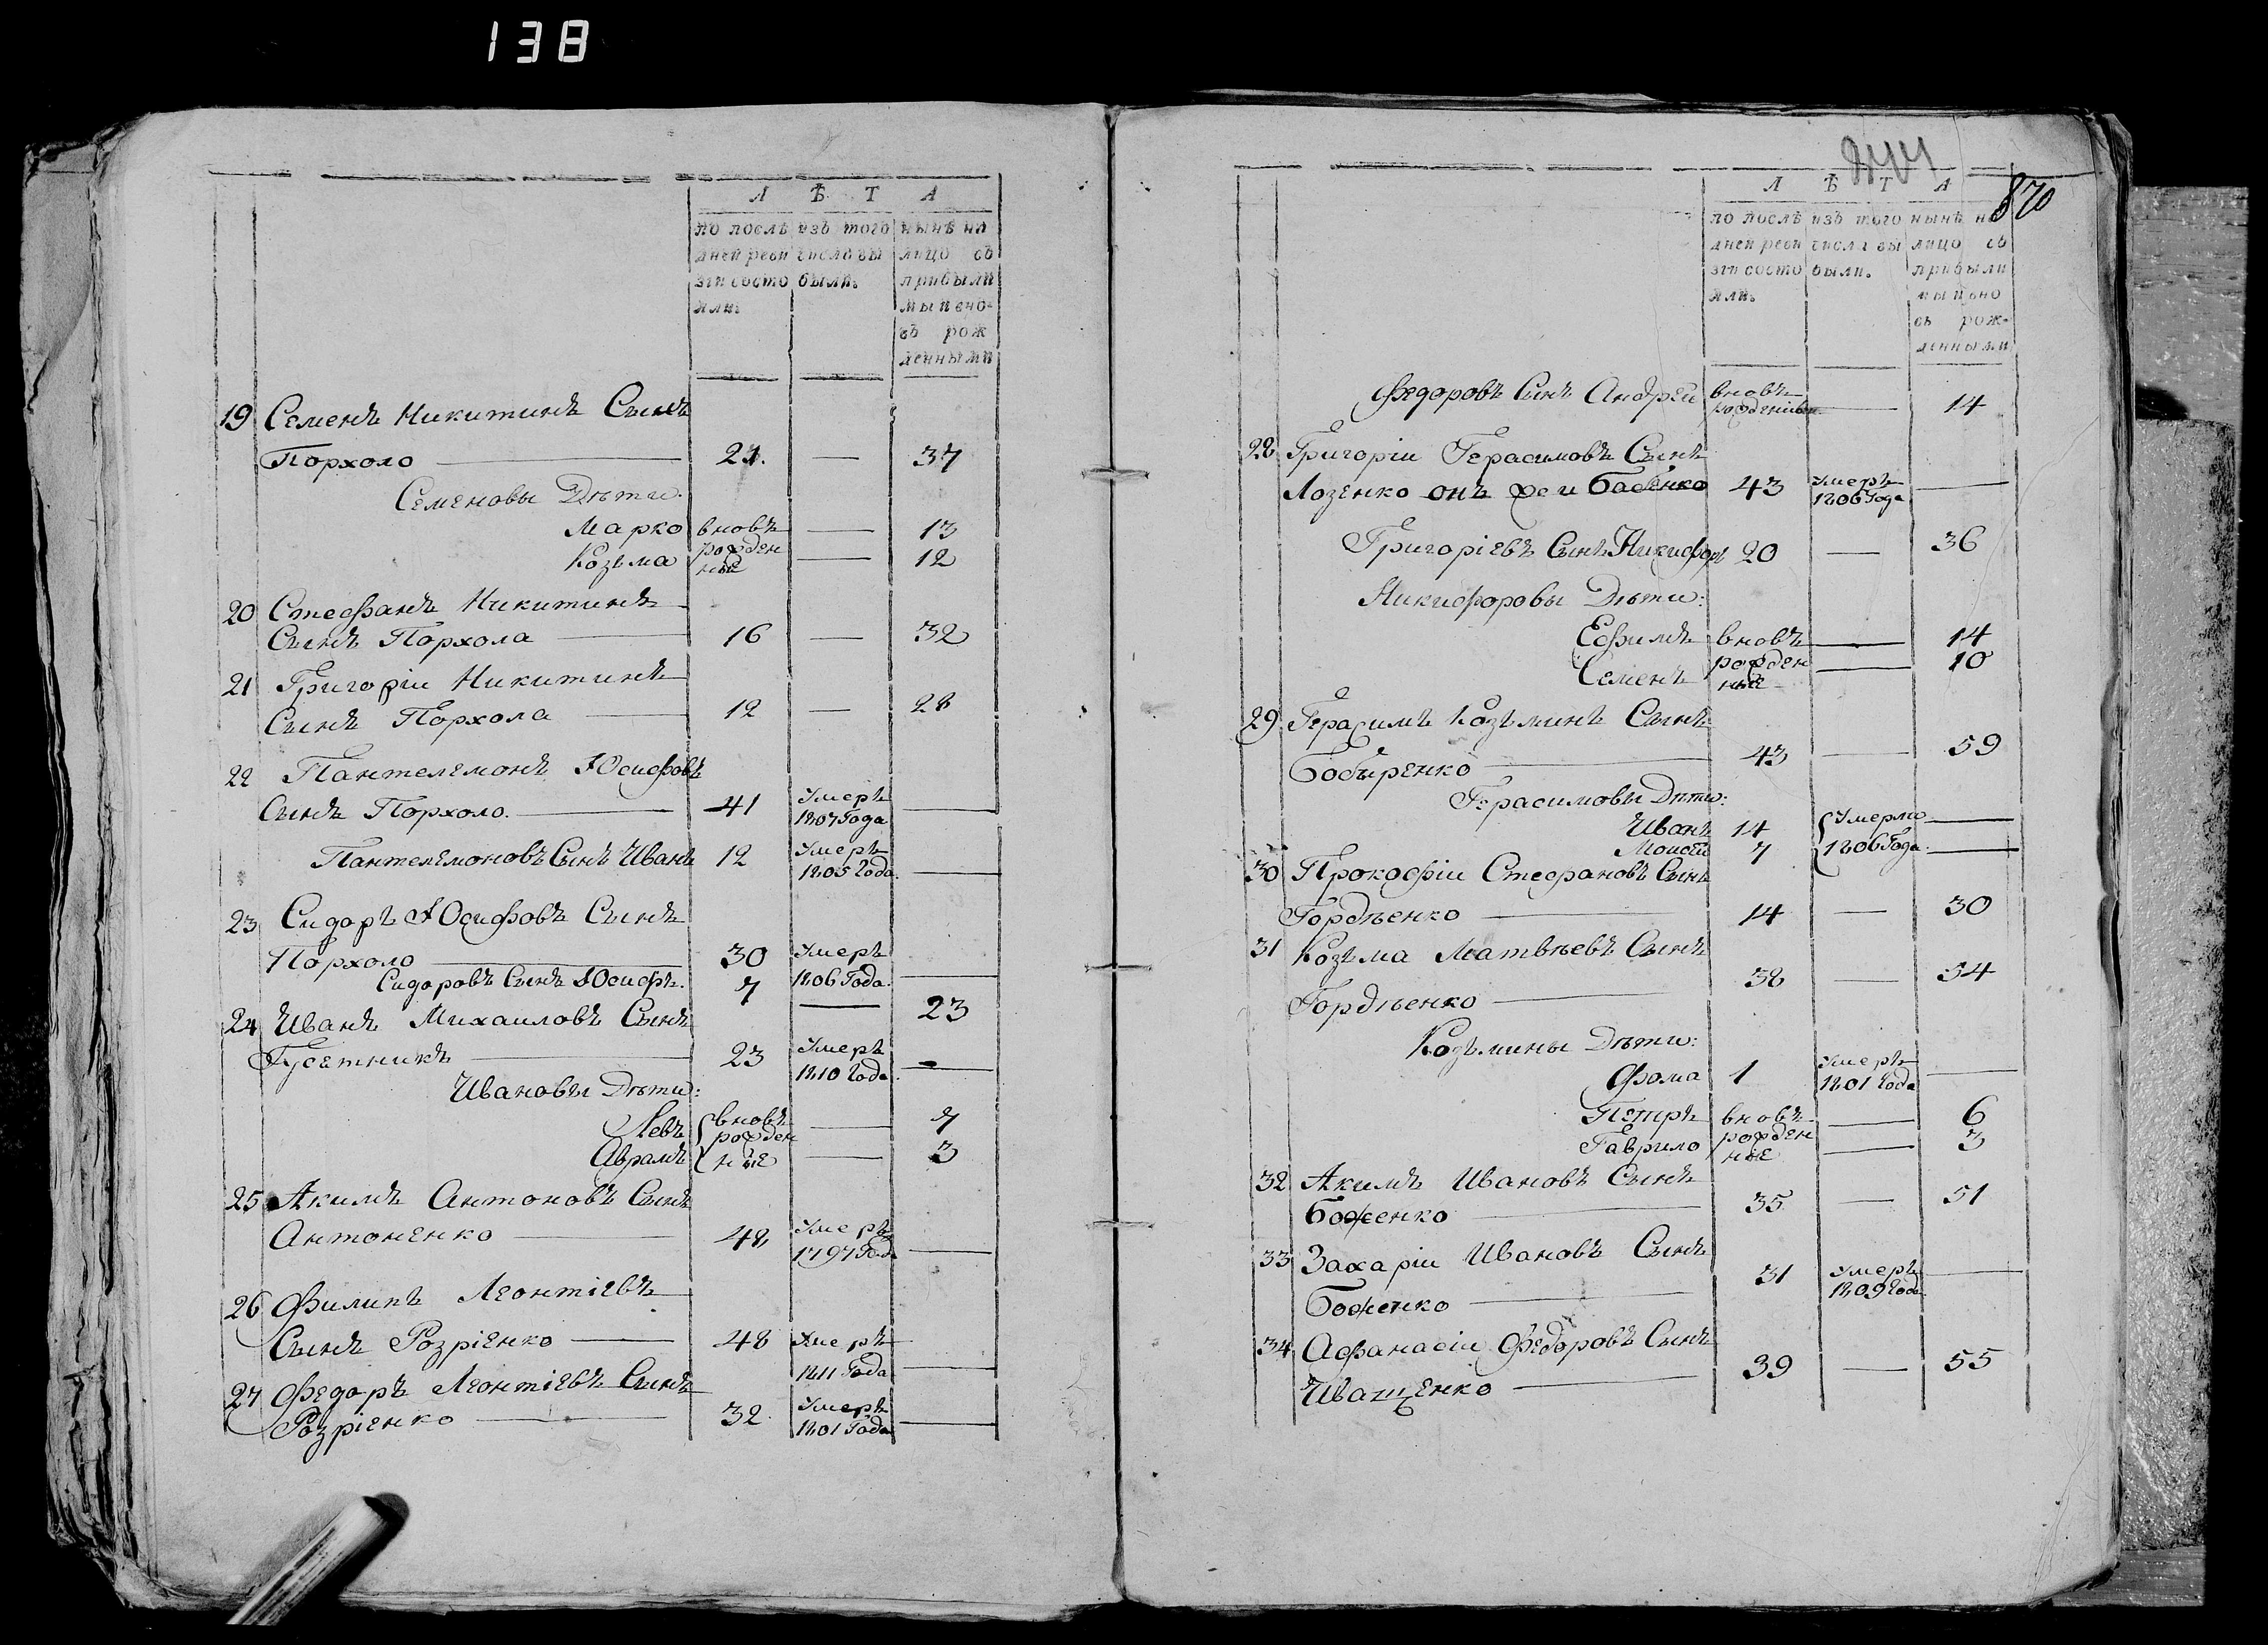 138
Л Ѣ Т А
по послѣ изъ того нынѣ на
дней реви числа вы лицо съ
зіи состо были. прибыли
яли. мы и вно-
въ рож
денными
19 Семенъ Никитинъ Сынъ
Порхоло 21. — 37
Семеновы Дѣти:
Марко вновь — 13
Козьма рожден — 12
ные
20 Стефанъ Никитинъ
Сынъ Порхола — 16 — 32
21 Григоріи Никитинъ
Сынъ Порхола — 12 — 28
22 Пантелемонъ Іосифовъ
Сынъ Порхоло. — 41 Умеръ —
1807 Года
Пантелемоновъ Сынъ Иванъ 12 Умеръ
1805 Года. —
23 Сидоръ Іосифовъ Сынъ
Порхоло — 30 Умеръ
1806 Года. —
Сидоровъ Сынъ Іосифъ. 7 — 23
24 Иванъ Михаиловъ Сынъ
Гусетникъ — 23 Умеръ
1810 Года. —
Ивановы Дѣти:
Левъ вновь — 7
рожден
Аврамъ ные — 3
25 Акимъ Антоновъ Сынъ
Антоненко — 48 Умеръ
1797 Года —
26 Филипъ Леонтіевъ
Сынъ Розріенко — 48 Умеръ
1811 Года —
27 Федоръ Леонтіевъ Сынъ
Розріенко — 32 Умеръ
1801 Года —
844
870
Л Ѣ Т А
по послѣ изъ того нынѣ на
дней реви числа вы лицо съ
зіи состо были. прибыли
яли. мы и вно
въ рож-
денными
Федоровъ Сынъ Андрей вновь
рожденный — 14
28 Григоріи Герасимовъ Сынъ
Лозенко онъ же и Бабенко 43 Умеръ
1806 Года —
Григоріевъ Сынъ Никифоръ 20 — 36
Никифоровы Дѣти:
Ефимъ вновь — 14
Семенъ рожден — 10
ные
29 Герасимъ Козьминъ Сынъ
Бобыренко — 43 — 59
Герасимовы Дѣти:
Иванъ 14 Умерли —
Моисей 7 1806 Года. —
30 Прокофіи Стефановъ Сынъ
Гордѣенко — 14 — 30
31 Козьма Матвѣевъ Сынъ
Гордѣенко — 38 — 54
Козьмины Дѣти:
Фома 1 Умеръ
1801 Года —
Петръ вновь — 6
Гаврило рожден — 3
ные
32 Акимъ Ивановъ Сынъ
Боженко — 35 — 51
33 Захаріи Ивановъ Сынъ
Боженко — 31 Умеръ —
1809 Года.
34 Афанасіи Федоровъ Сынъ
Иващенко — 39 — 55